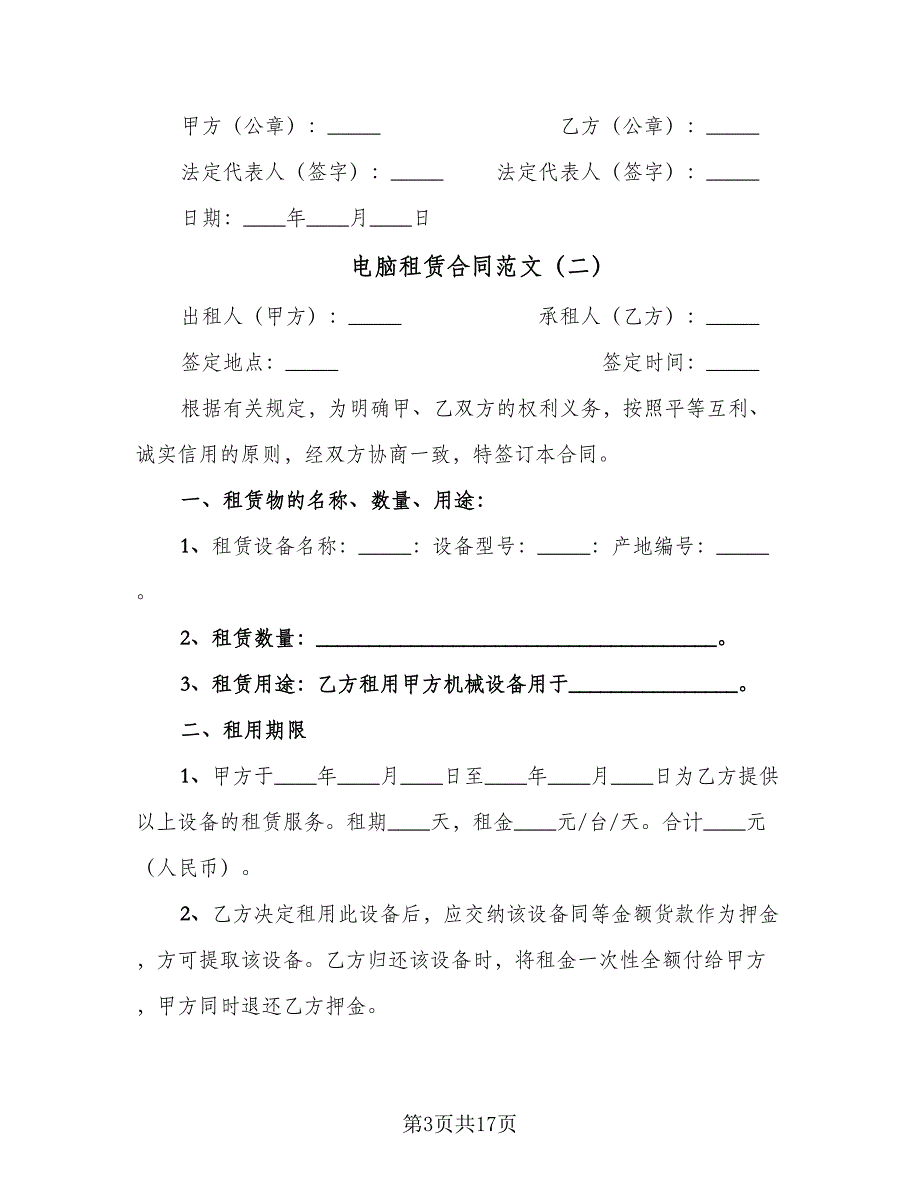 甲方（公章）：_____ 乙方（公章）：_____
法定代表人（签字）：_____ 法定代表人（签字）：_____
日期：____年____月____日
电脑租赁合同范文（二）
出租人（甲方）：_____ 承租人（乙方）：_____
签定地点：_____ 签定时间：_____
根据有关规定，为明确甲、乙双方的权利义务，按照平等互利、
诚实信用的原则，经双方协商一致，特签订本合同。
一、租赁物的名称、数量、用途：
1、租赁设备名称：_____：设备型号：_____：产地编号：_____
。
2、租赁数量：______________________________________。
3、租赁用途：乙方租用甲方机械设备用于________________。
二、租用期限
1、甲方于____年____月____日至____年____月____日为乙方提供
以上设备的租赁服务。租期____天，租金____元/台/天。合计____元
（人民币）。
2、乙方决定租用此设备后，应交纳该设备同等金额货款作为押金
，方可提取该设备。乙方归还该设备时，将租金一次性全额付给甲方
，甲方同时退还乙方押金。
第3页共17页